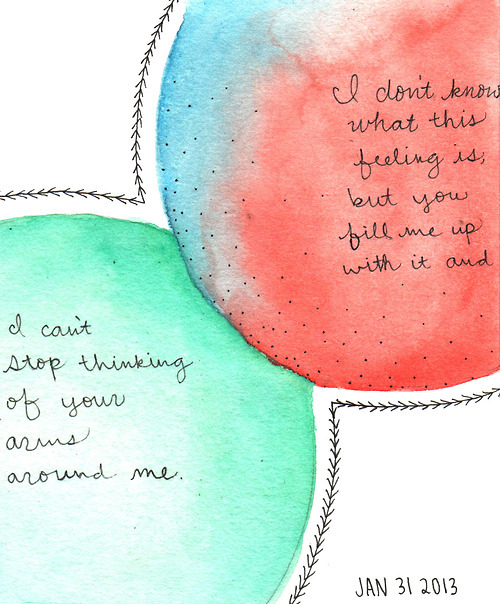 I don't know
what this
feeling is,
but you
fill me up
with it and
I can't
stop thinking
of your
arms
around me.
JAN 31 2013